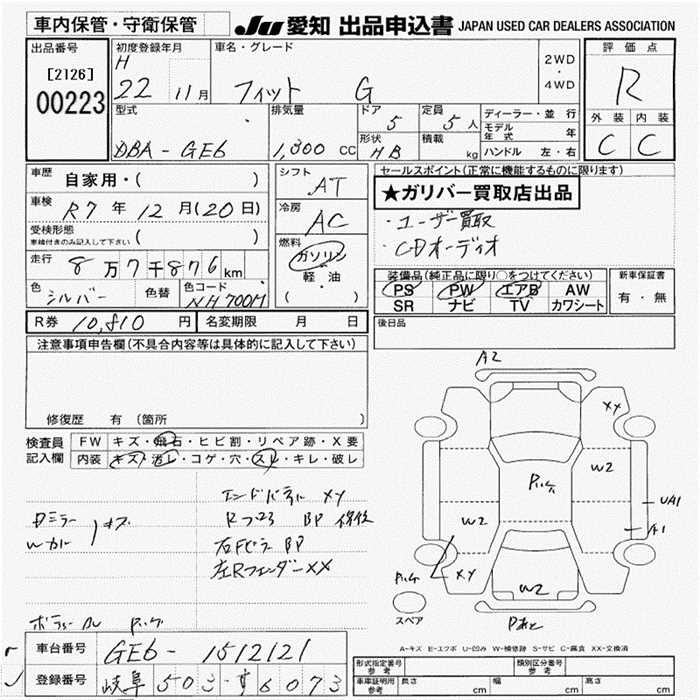 車内保管・守衛保管
JU 愛知 出品申込書 JAPAN USED CAR DEALERS ASSOCIATION
出品番号
[2126]
00223
初度登録年月
H
22 11月
車名・グレード
フィット G
2WD
・
4WD
評価点
R
外装 内装
C C
型式
DBA-GE6
排気量
1,300 cc
ドア 5
定員 5人
形状 HB
積載 kg
ディーラー・並行
モデル年式 年
ハンドル 左・右
車歴 自家用・( )
車検 R7年12月(20日)
受検形態
車検付きのみ記入して下さい ( )
走行 8万7千876km
色 シルバー 色替 色コード NH700M
シフト AT
冷房 AC
燃料
ガソリン
軽・油
( )
セールスポイント(正常に機能するものに限ります)
★ガリバー買取店出品
・ユーザー買取
・CDオーディオ
装備品(純正品に限り○をつけてください)
PS PW エアB AW
SR ナビ TV カワシート
新車保証書
有・無
R券 10,810円 名変期限 月 日
後日品
注意事項申告欄(不具合内容等は具体的に記入して下さい)
修復歴 有 (箇所 )
検査員
記入欄
FW キズ・飛石・ヒビ割・リペア跡・X要
内装 キズ・汚レ・コゲ・穴・スレ・キレ・破レ
エンドパネル XY
Rフロア BP 修復
右Fピラー BP
左Rフェンダー XX
キズ
A2
XX
W2
W2
W2
UA1
A1
XY
スペア
A-キズ E-エクボ U-凹み W-補修跡 S-サビ C-腐食 XX-交換済
車台番号 GE6-1512121
登録番号 岐阜 503 す 6073
形式指定番号
参考
類別区分番号
参考
車庫証明用
参考
長さ cm 幅 cm 高さ cm